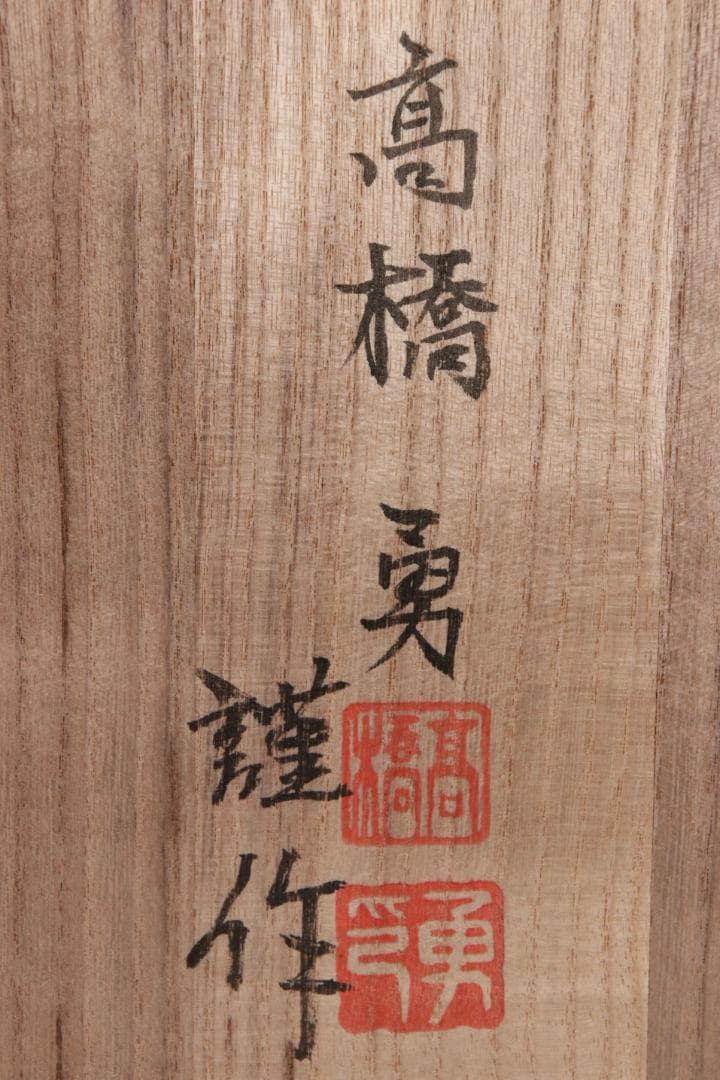 髙橋勇
謹作
髙橋
勇印